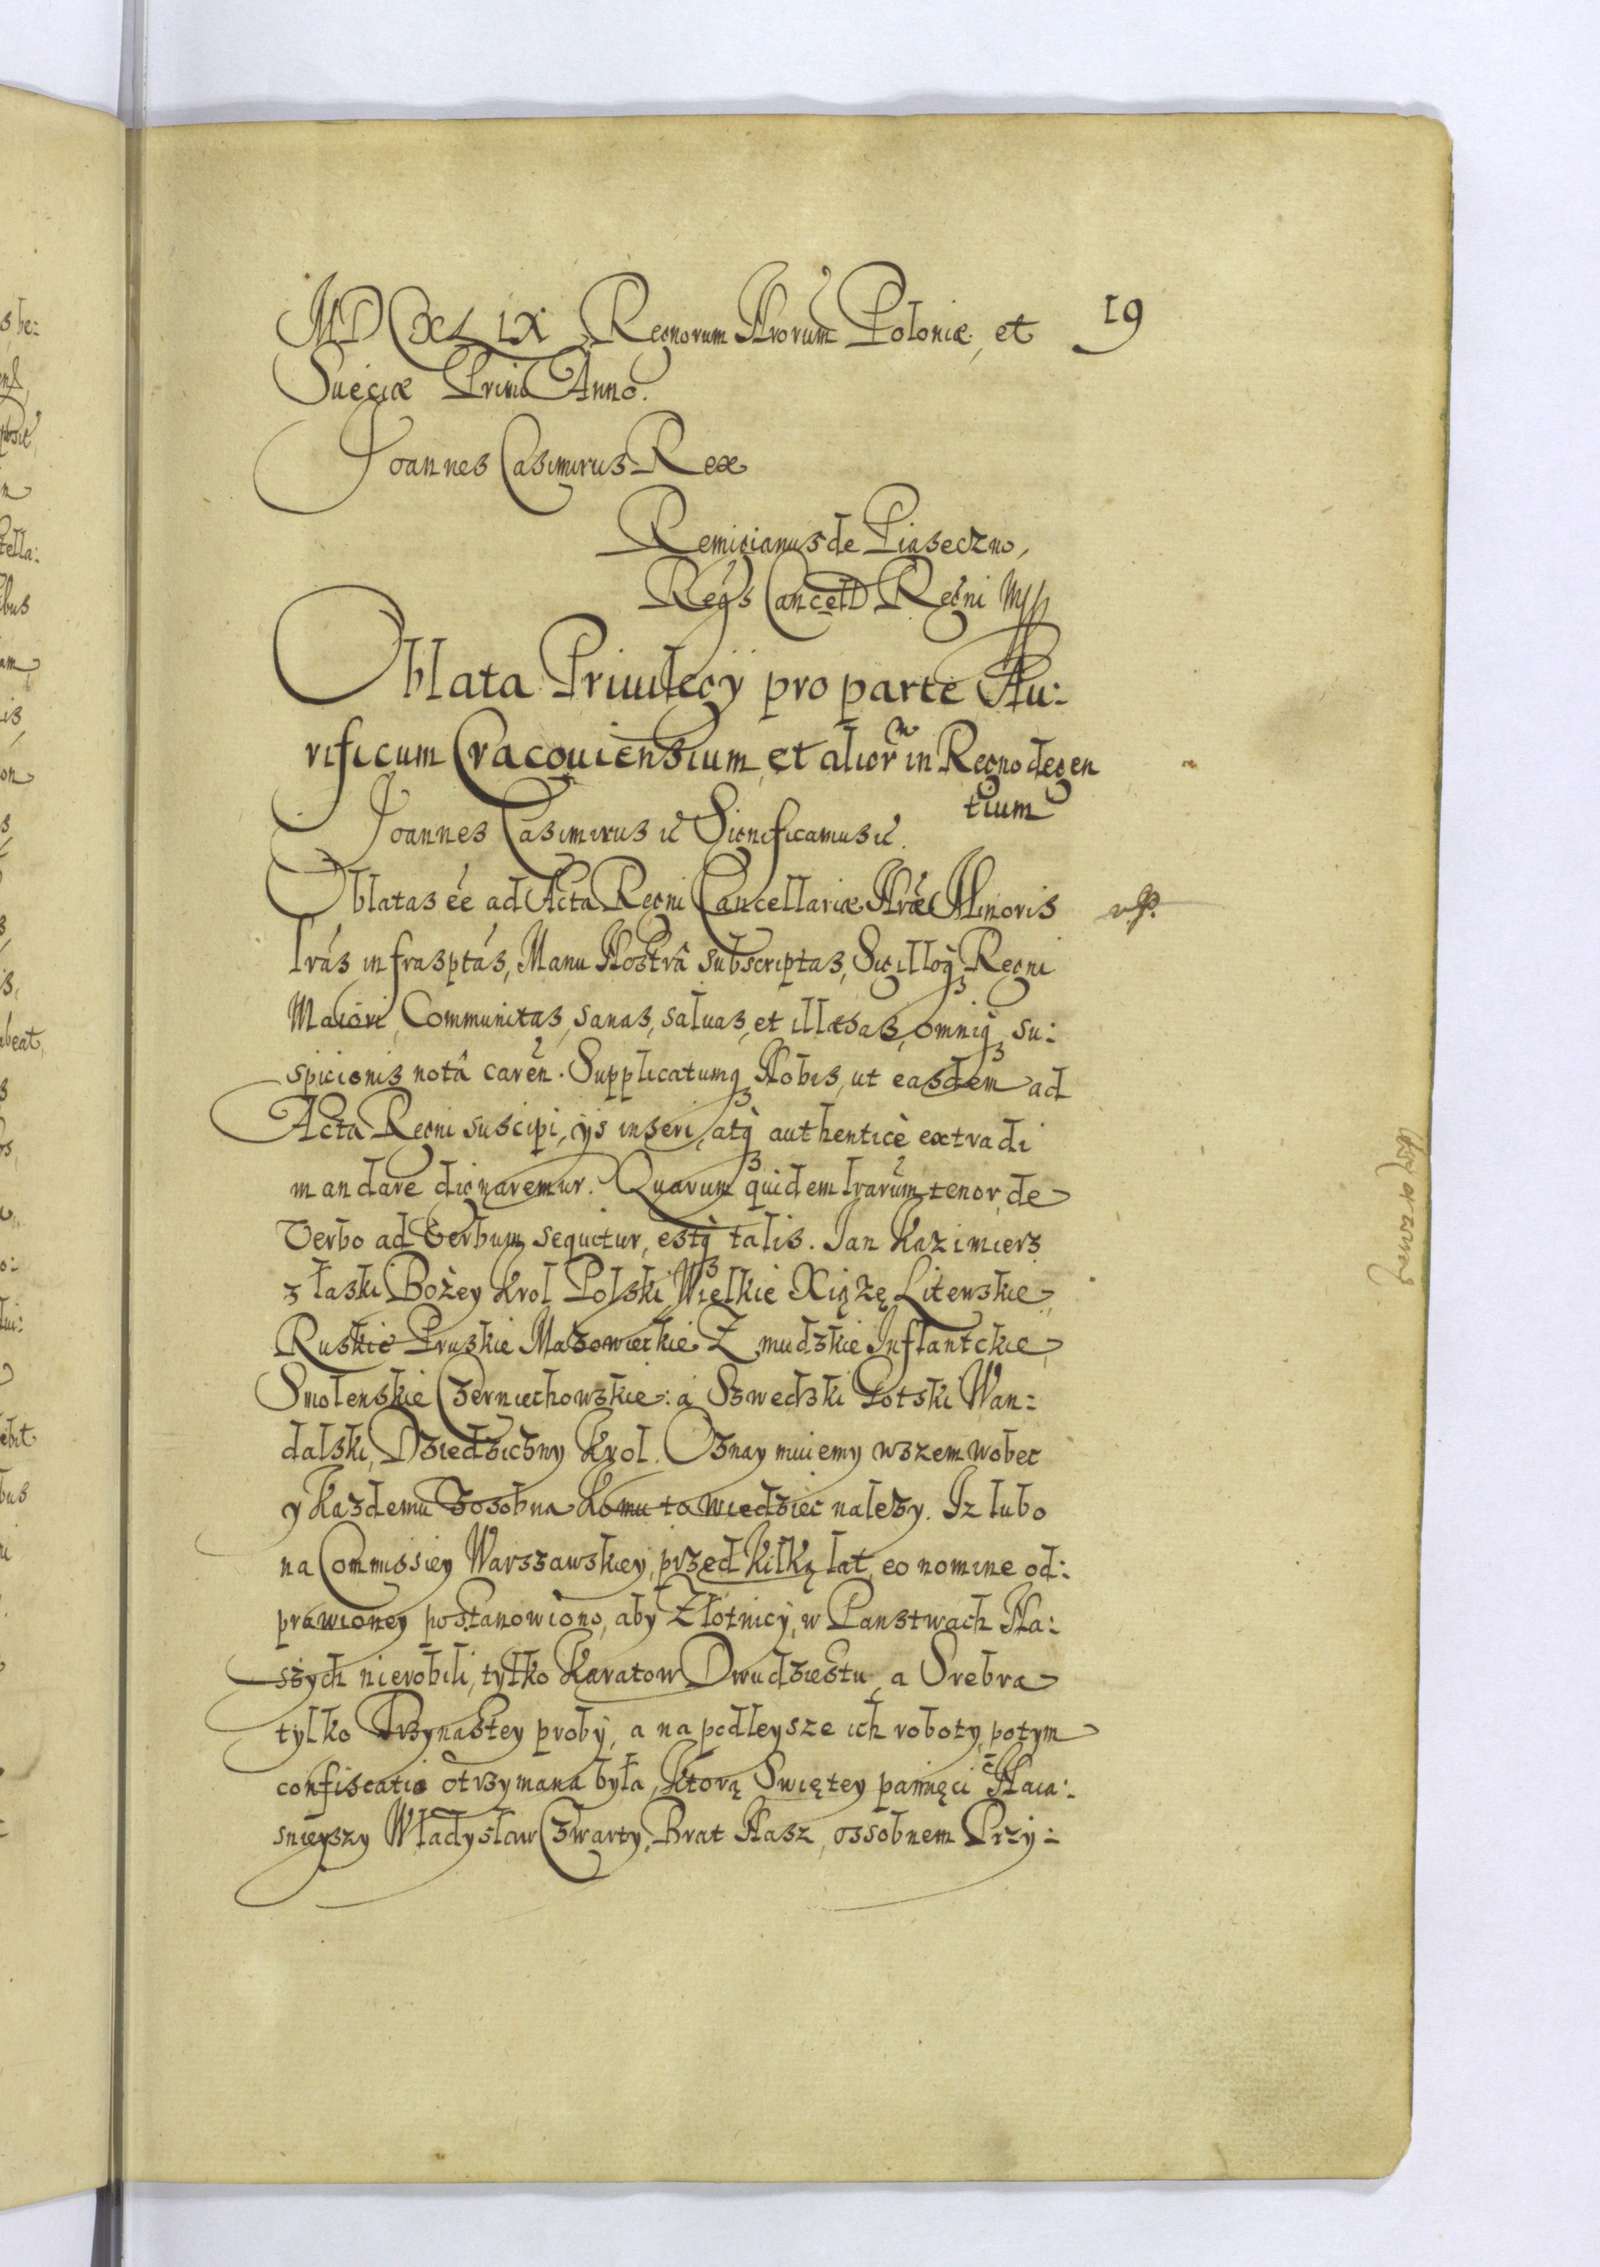 MDCXLIX Regnorum Nrorum Poloniæ, et 19
Sueciæ Primo Anno.
Joannes Casimirus Rex
Remigianus de Piaseczno,
Regs Cancell Regni mp
Oblata Priuilegÿ pro parte Au:
rificum Cracouiensium, et alior in Regno degen
tium
Joannes Casimirus &c Significamus &c.
Oblatas eé ad Acta Regni Cancellariæ Nræ Minoris
lrás infrasptás, Manu Nostrâ subscriptas, Sigilloq Regni
Maiori, Communitas, sanas, saluas, et illæsas, omniq su:
spicionis notâ caren. Supplicatumq Nobis, ut easdem ad
Acta Regni suscipi, ijs inseri, atq authenticè extradi
mandare dignaremur. Quarum quidem lrarum tenor, de
Verbo ad Verbum sequitur, estq talis. Jan Kazimierz
z łaski Bożey Krol Polski, Wielkie Xiążę Litewskie,
Ruskie Pruskie Mazowieckie Zmudzkie Inflantckie,
Smolenskie Czerniechowskie: á Szwedzki Gotski Wan:
dalski, Dziedziczny Krol. Oznaymuiemy wszem wobec
y Kazdemu zosobna Komu to wiedziec nalezy. Iz lubo
na Commissiey Warszawskiey, przed kilką lat, eo nomine od:
prawioney postanowiono, aby Złotnicy, w Panstwach Na:
szych nierobili, tylko Karatow Dwudziestu, a Srebra
tylko Trzynastey proby, a na podleysze ich roboty, potym
confiscatio otrzymana była, Ktorą Swiętey pamięci Naia:
snieyszy Władysław Czwarty, Brat Nasz, ossobnem Przy: